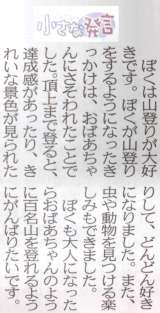 小さな発言
ぼくは山登りが大好
きです。ぼくが山登り
をするようになったき
っかけは、おばあちゃ
んにさそわれたことで
した。頂上まで登ると、
達成感があったり、き
れいな景色が見られた
りして、どんどん好き
になりました。また、
虫や動物を見つける楽
しみもできました。
ぼくも大人になった
らおばあちゃんのよう
に百名山を登れるよう
にがんばりたいです。